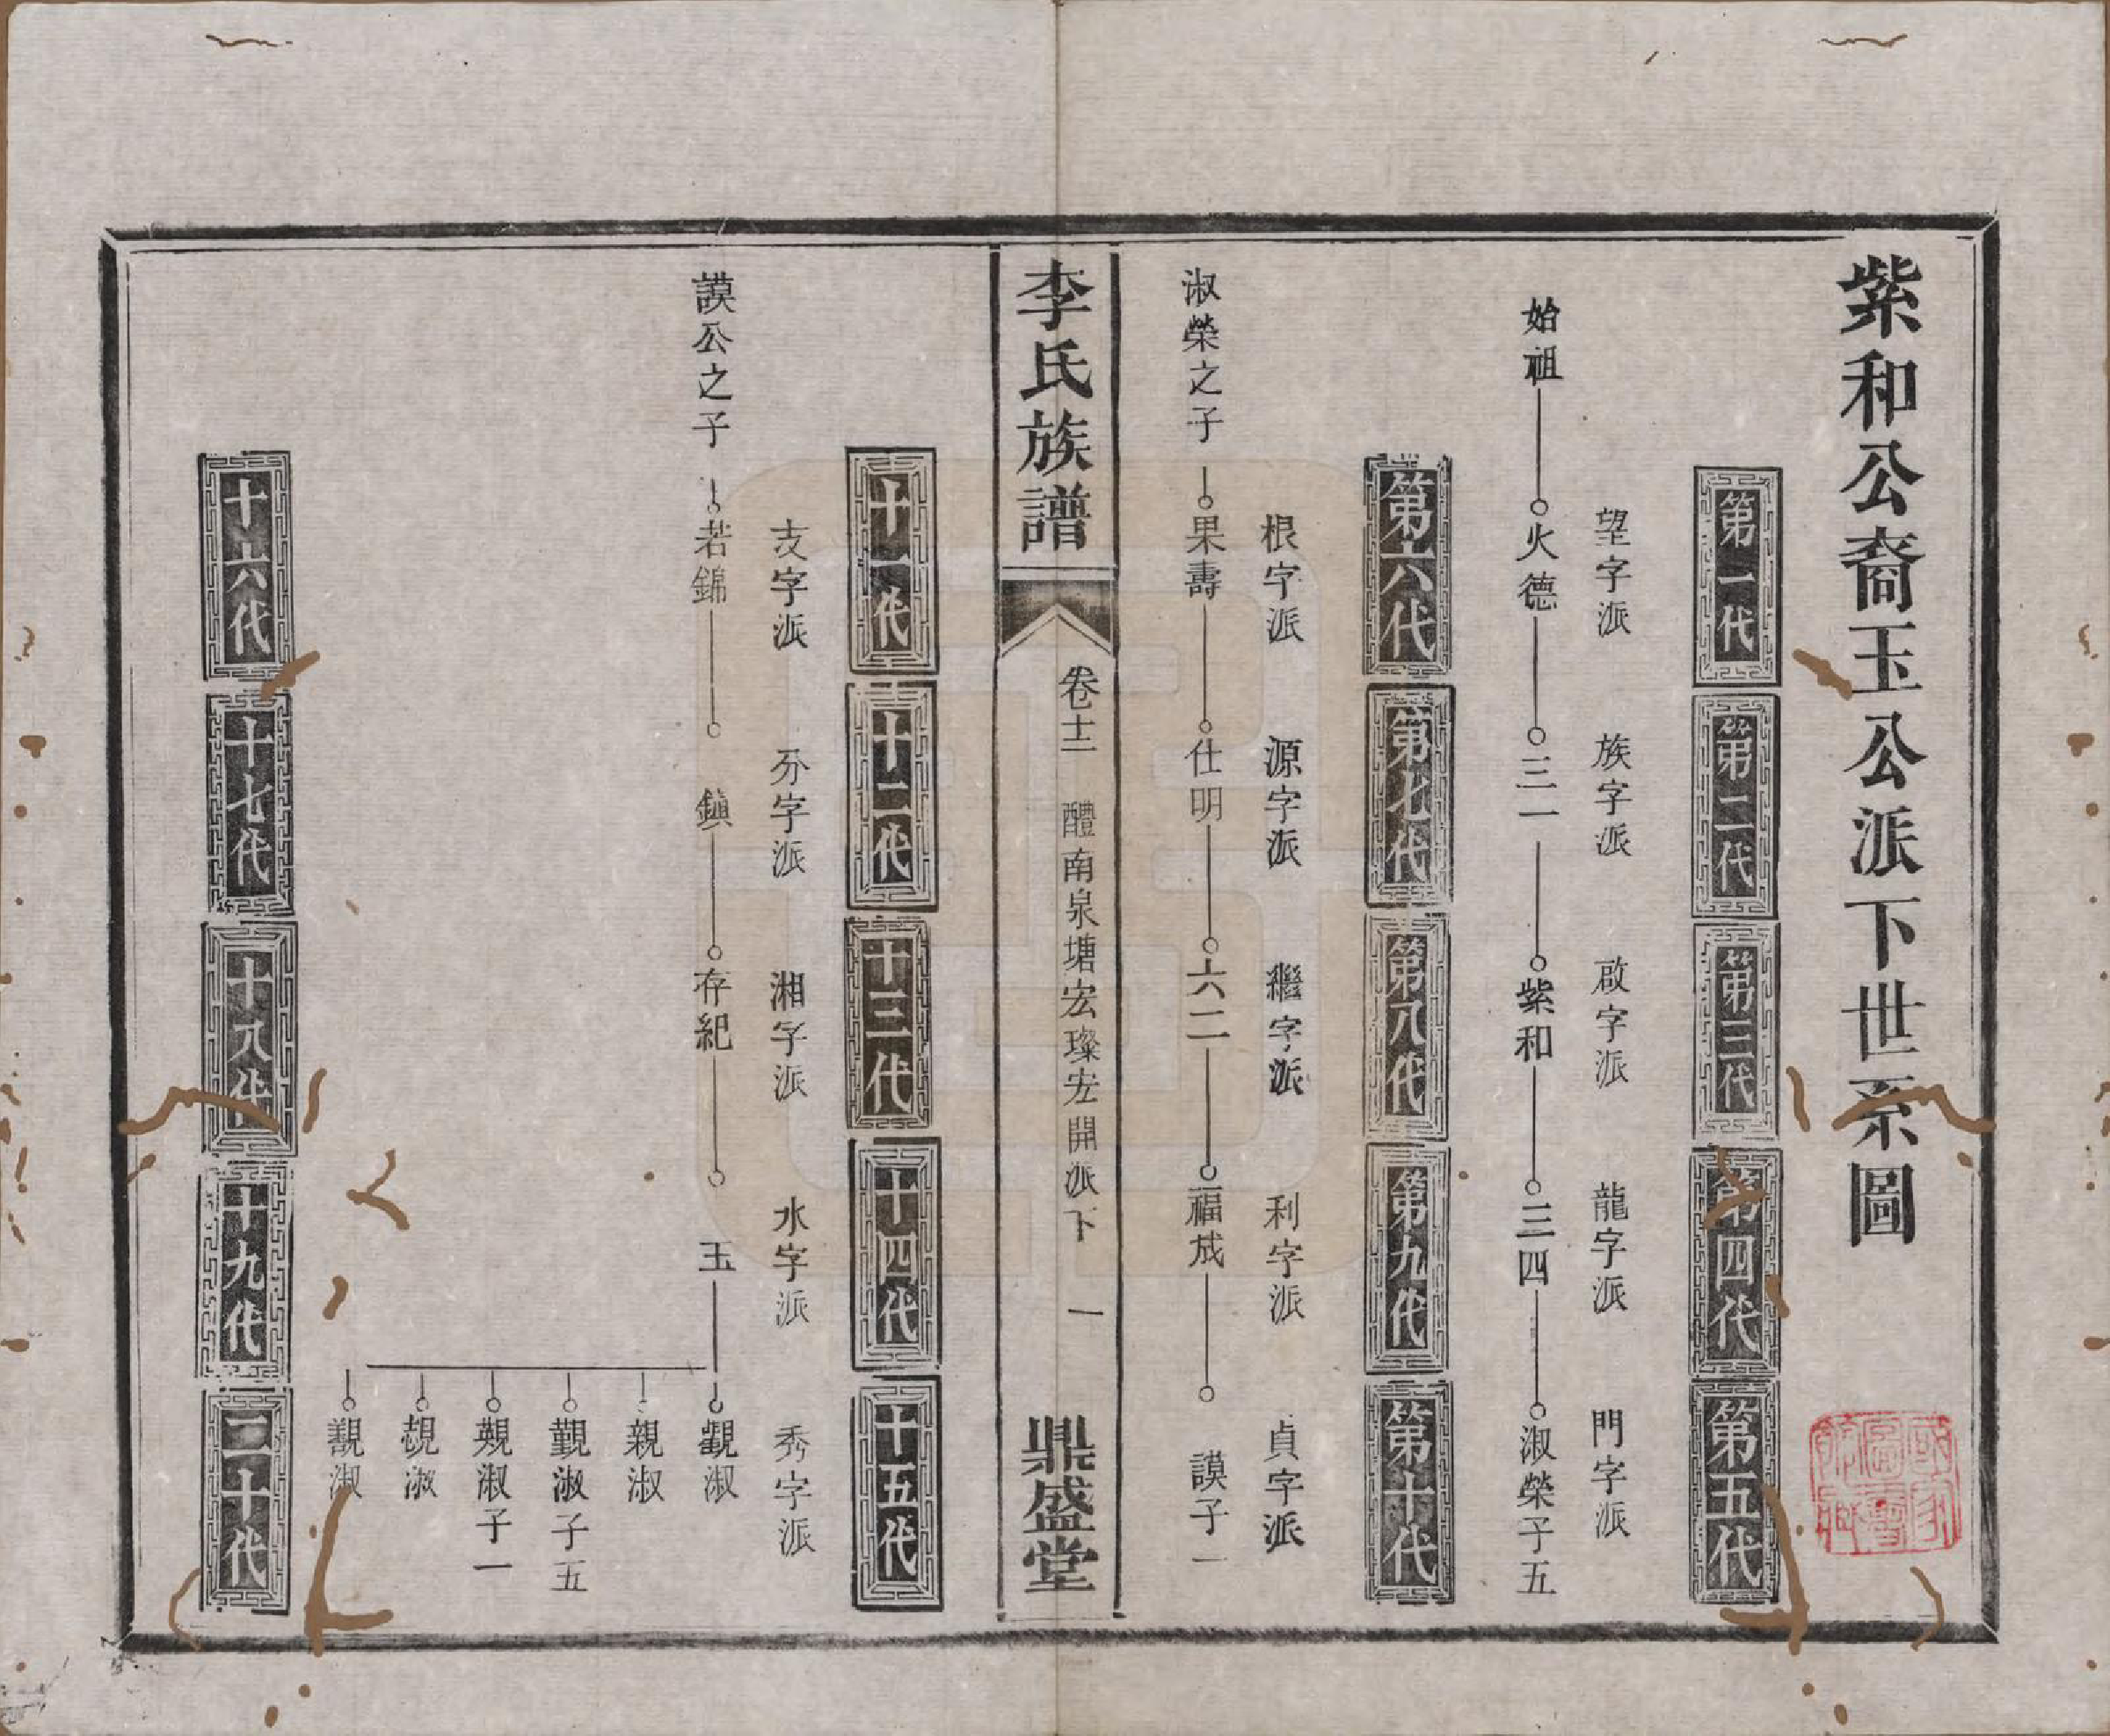 紫和公裔玉公派下世系圖
第一代 第二代 第三代 第四代 第五代
望字派 族字派 啟字派 龍字派 門字派
始祖 火德 三一 紫和 三四 淑榮子五
第六代 第七代 第八代 第九代 第十代
根字派 源字派 繼字派 利字派 貞字派
淑榮之子 果壽 仕明 六二 福成 謨子一
李氏族譜 卷十二 醴南泉塘宏璨宏開派下 一 鼎盛堂
十一代 十二代 十三代 十四代 十五代
支字派 分字派 湘字派 水字派 秀字派
謨公之子 若錦 鎮 存紀 玉 觀淑
親淑
覲淑子五
觌淑子一
覩淑
觀淑
十六代 十七代 十八代 十九代 二十代